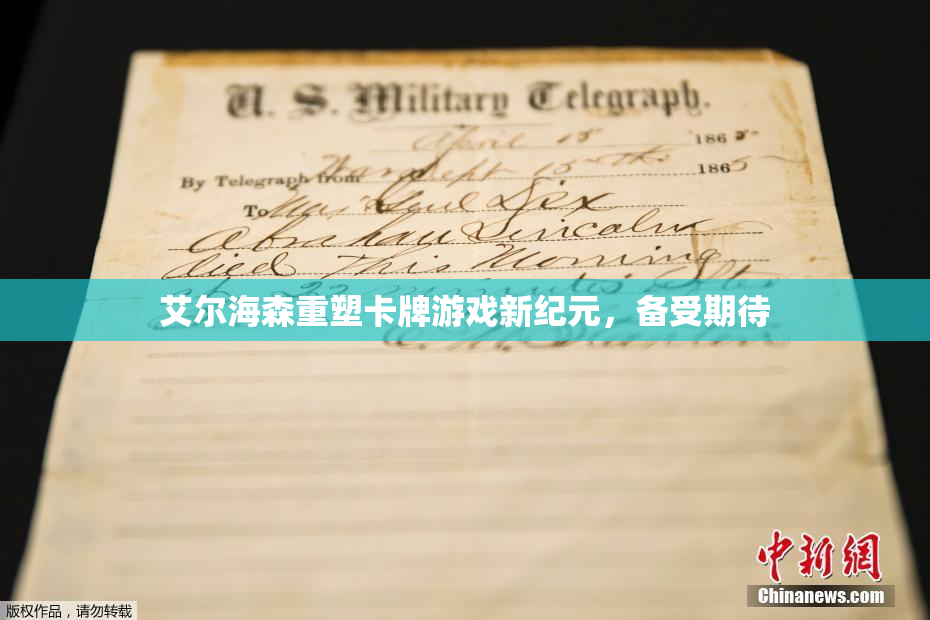 U. S. Military Telegraph.
April 15 1865
By Telegraph from War Dept 15th 1865
To Maj Genl Dix
Abraham Lincoln
died This Morning
at 22 minutes after
艾尔海森重塑卡牌游戏新纪元，备受期待
E. M. Stanton
中新网
Chinanews.com
版权作品，请勿转载